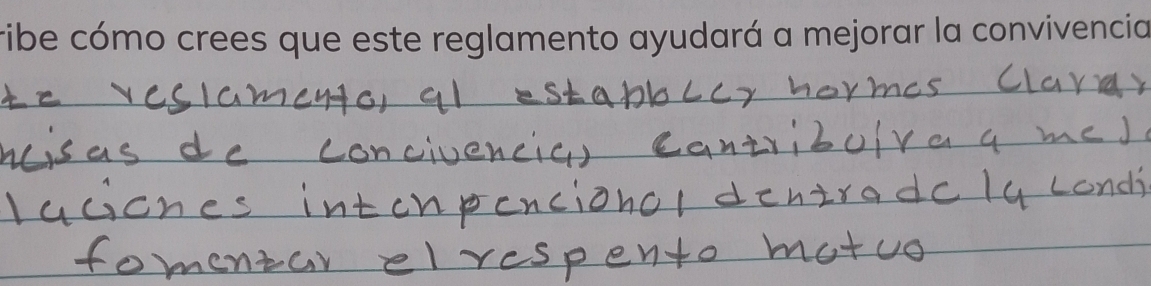 ribe cómo crees que este reglamento ayudará a mejorar la convivencia
te reslamento, al establecer normes Claras
ncisas de concivencia, cantribuira a mej
laciones intenpencional dentrade la condi
fomentar el respento motuo